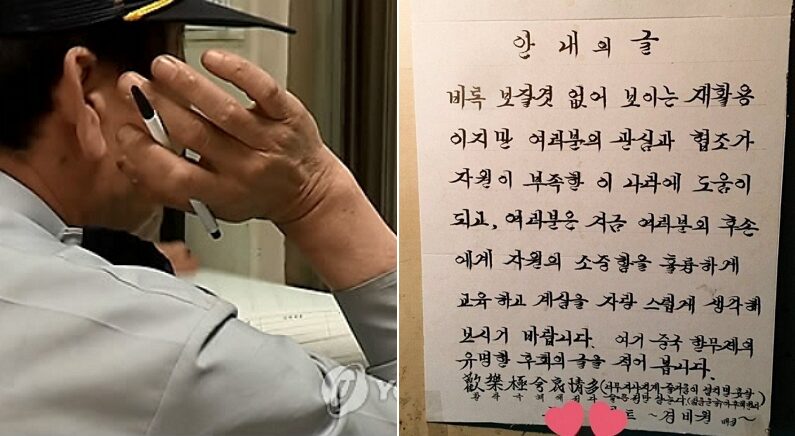 안내의 글
비록 보잘것 없어 보이는 재활용
이지만 여러분의 관심과 협조가
자원이 부족한 이 사회에 도움이
되고, 여러분은 지금 여러분의 후손
에게 자원의 소중함을 훌륭하게
교육하고 계심을 자랑 스럽게 생각해
보시기 바랍니다. 여기 중국 한무제의
유명한 후회의 글을 적어 봅니다.
歡樂極兮哀情多
~ 경비원 ~